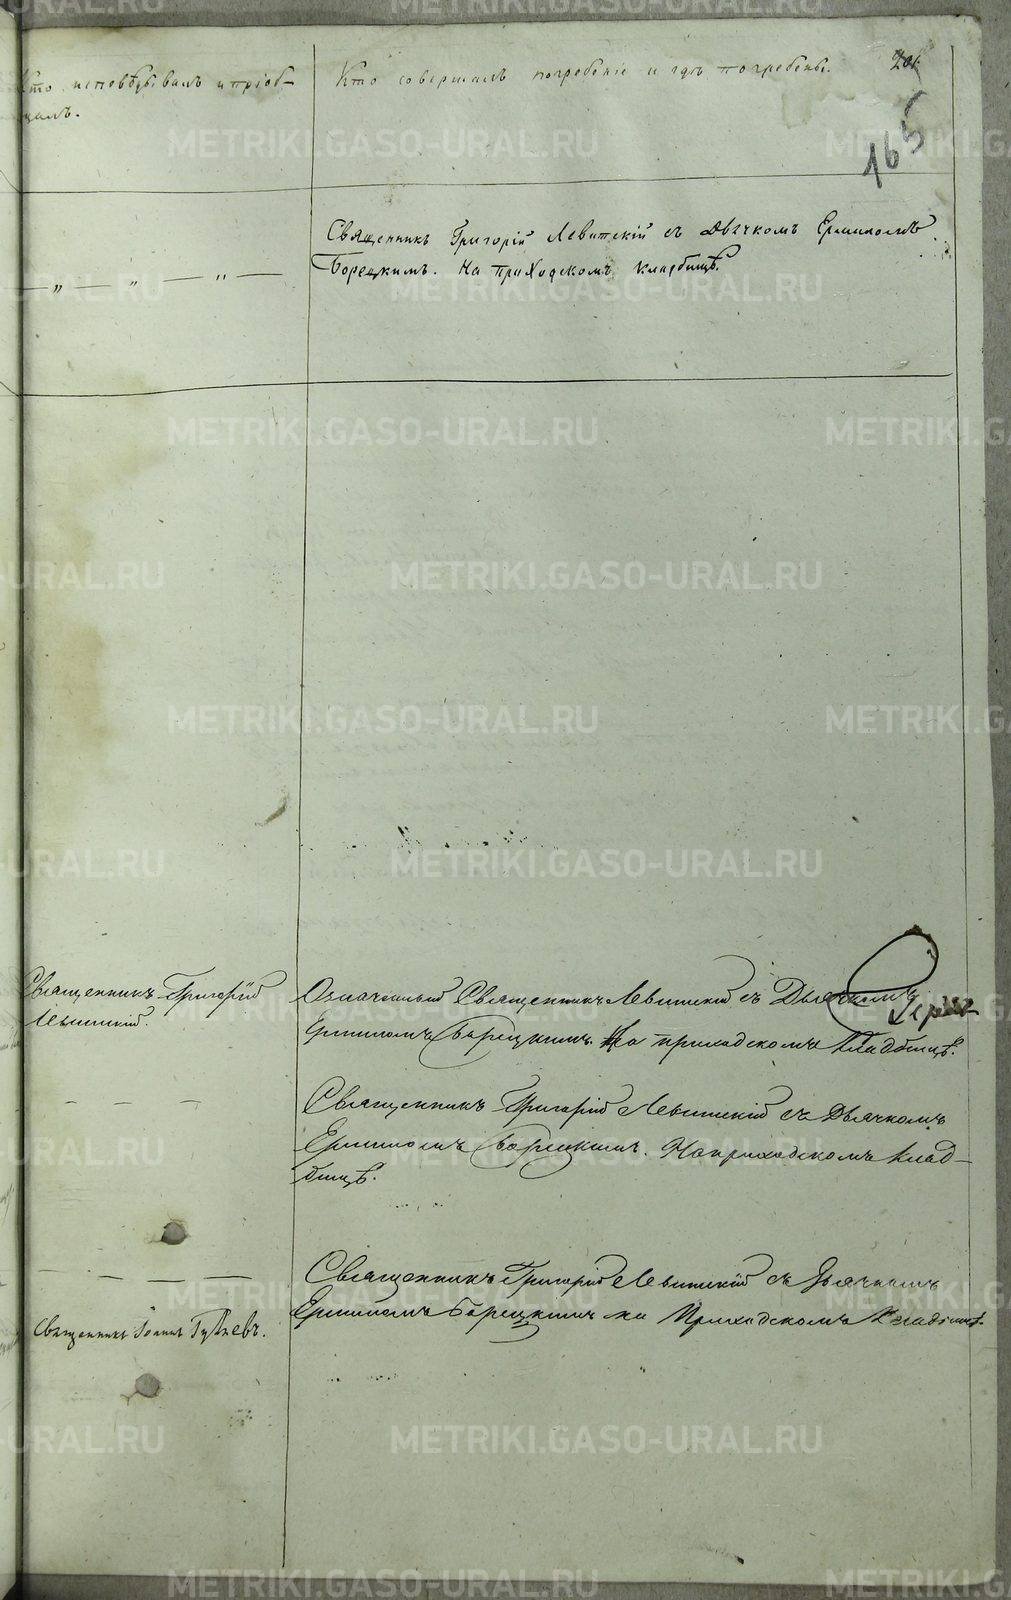 Кто исповѣдывалъ и пріоб-
щалъ.
Кто совершалъ погребеніе и гдѣ погребены.
165
— „ — „ — „ —
Священникъ Григорій Левитскій съ Дьячкомъ Ермиломъ
Борецкимъ. На приходскомъ кладбищѣ.
Священникъ Григорій
Левитскій.
Означенный Священникъ Левитскій съ Дьячкомъ
Ермиломъ Борецкимъ. На приходскомъ кладбищѣ.
— — —
Священникъ Григорій Левитскій съ Дьячкомъ
Ермиломъ Борецкимъ. На приходскомъ клад-
бищѣ.
— — — —
Священникъ Григорій Левитскій съ Дьячкомъ
Ермиломъ Борецкимъ на Приходскомъ Кладбищѣ.
Священникъ Іоаннъ
METRIKI.GASO-URAL.RU